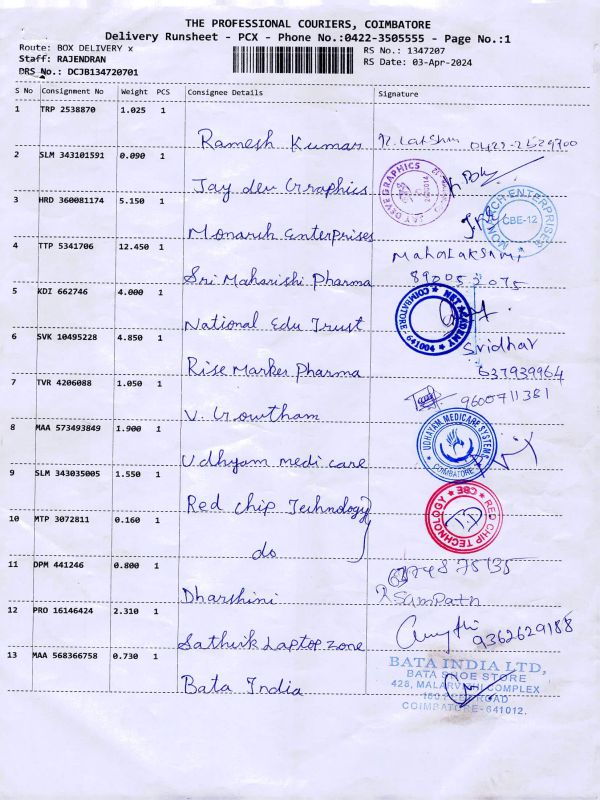 THE PROFESSIONAL COURIERS, COIMBATORE
Delivery Runsheet - PCX - Phone No.:0422-3505555 - Page No.:1
Route: BOX DELIVERY x
RS No.: 1347207
Staff: RAJENDRAN
RS Date: 03-Apr-2024
DRS No.: DCJB134720701
S No Consignment No Weight PCS Consignee Details Signature
1 TRP 2538870 1.025 1
Ramesh Kumar
2 SLM 343101591 0.090 1
Jay dev Graphics
3 HRD 360081174 5.150 1
CBE-12
Monarch Enterprises
4 TTP 5341706 12.450 1
Mahalakshmi
Sri Maharishi Pharma
5 KDI 662746 4.000 1
NET ACADEMY
COIMBATORE - 641004
National Edu Trust
6 SVK 10495228 4.850 1
Sridhar
Rise Marker Pharma
637939964
7 TVR 4206088 1.050 1
9600711381
V. Gowtham
8 MAA 573493849 1.900 1
UDHAYAM MEDICARE SYSTEM
COIMBATORE
Udhyam medi care
9 SLM 343035005 1.550 1
Red chip Technology
RED CHIP TECHNOLOGY
CBE
10 MTP 3072811 0.160 1
do
11 DPM 441246 0.800 1
Dharshini
Sampath
12 PRO 16146424 2.310 1
9362629188
Sathvik Laptop zone
13 MAA 568366758 0.730 1
BATA INDIA LTD,
BATA SHOE STORE
428, MALARVIZHI COMPLEX
ROAD
COIMBATORE-641012.
Bata India